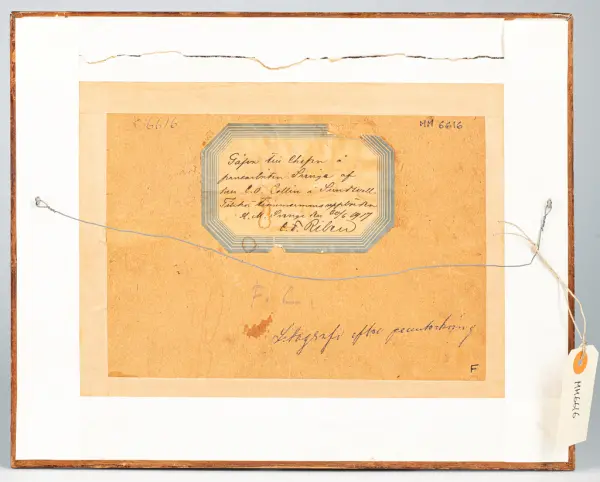 C6616
MM 6616
Gåfva till Chefen å
pansarbåten Svenge af
C.O. Collin i Sundsvall.
H.M. Svenge den 20/6 1917
C.F. Riben
F. L.
Litografi efter pennteckning
F
MM6616